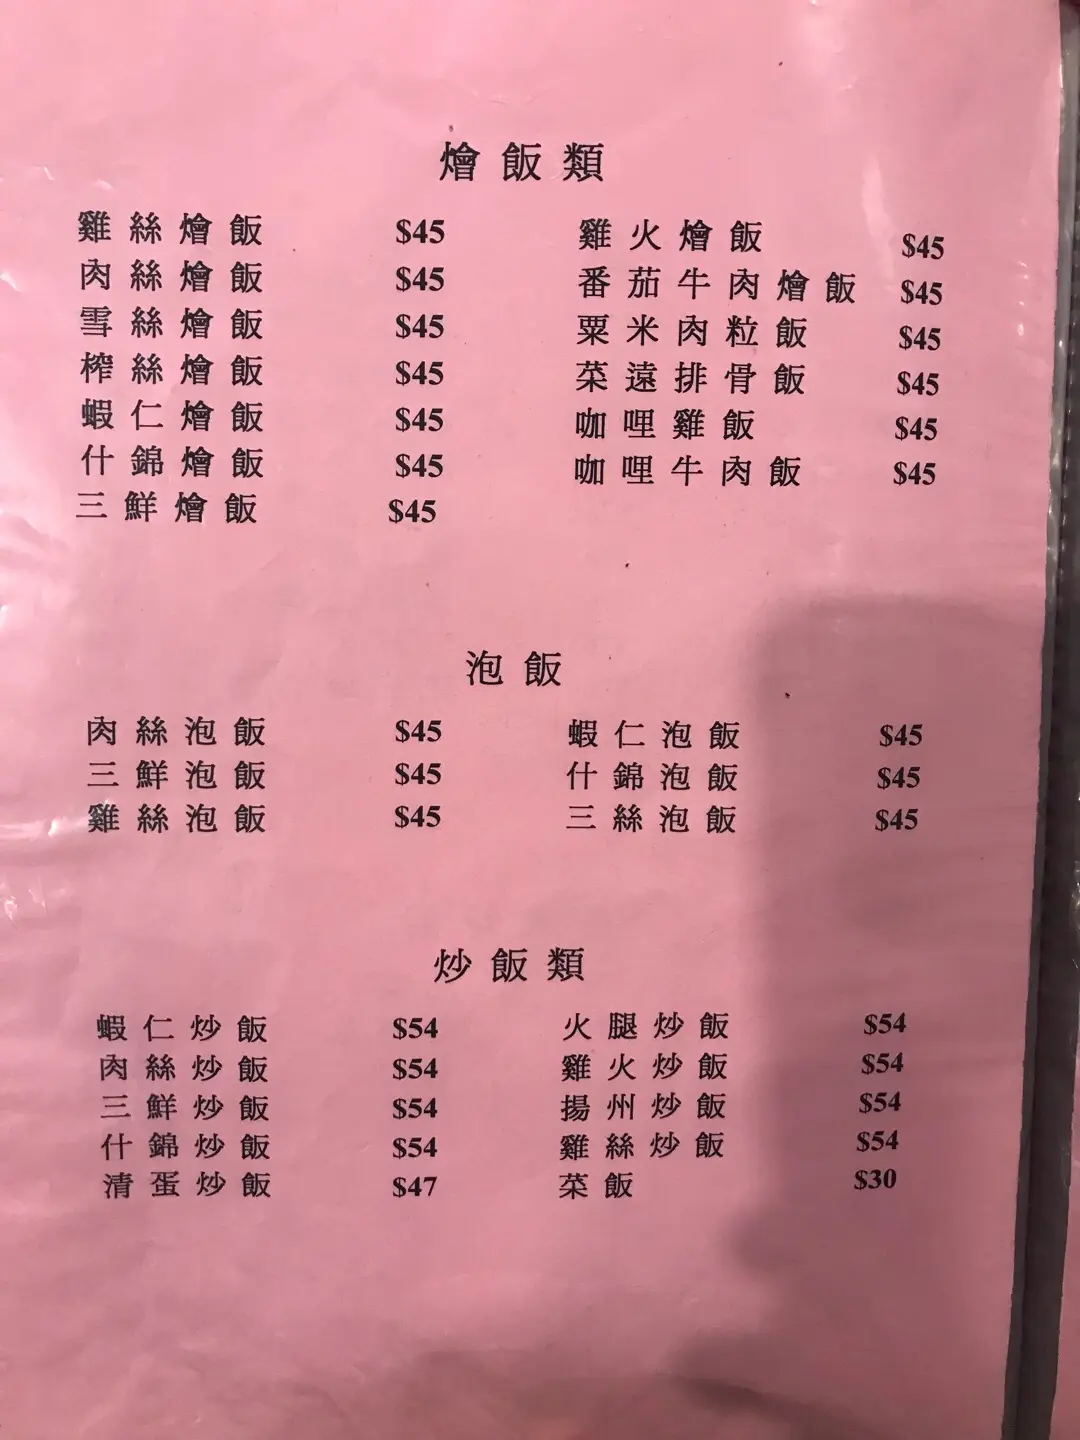 燴飯類
雞絲燴飯 $45 雞火燴飯 $45
肉絲燴飯 $45 番茄牛肉燴飯 $45
雪絲燴飯 $45 粟米肉粒飯 $45
榨絲燴飯 $45 菜遠排骨飯 $45
蝦仁燴飯 $45 咖哩雞飯 $45
什錦燴飯 $45 咖哩牛肉飯 $45
三鮮燴飯 $45
泡飯
肉絲泡飯 $45 蝦仁泡飯 $45
三鮮泡飯 $45 什錦泡飯 $45
雞絲泡飯 $45 三絲泡飯 $45
炒飯類
蝦仁炒飯 $54 火腿炒飯 $54
肉絲炒飯 $54 雞火炒飯 $54
三鮮炒飯 $54 揚州炒飯 $54
什錦炒飯 $54 雞絲炒飯 $54
清蛋炒飯 $47 菜飯 $30